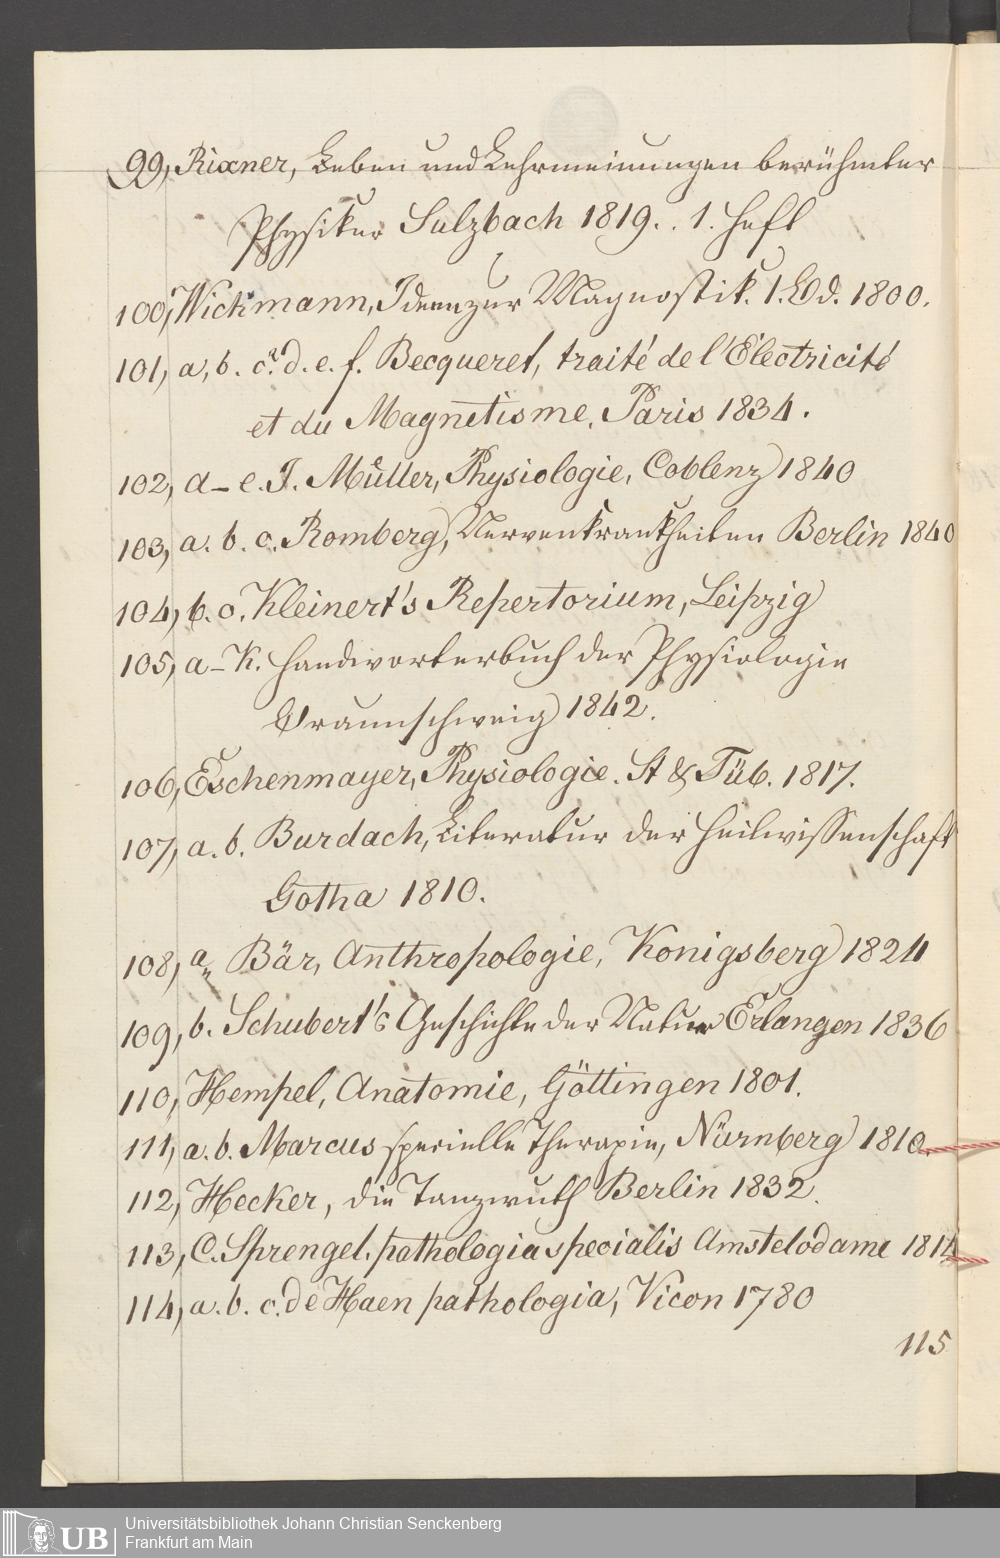 99, Rixner, Leben und Lehrmeinungen berühmter
Physiker Sulzbach 1819. . 1. Heft
100, Wichmann, Ideen zur Magnostik. 1. Bd. 1800.
101, a, b. c. d. e. f. Becquerel, traité de l'Électricité
et du Magnetisme, Paris 1834.
102, d-e. J. Müller, Physiologie, Coblenz 1840
103, a. b. c. Romberg, Nervenkrankheiten Berlin 1840
104, b. c. Kleinert's Repertorium, Leipzig
105, a-K. Handworterbuch der Physiologie
Braunschweig 1842.
106, Eschenmayer, Physiologie. St & Tüb. 1817.
107, a. b. Burdach, Literatur der Heilwissenschaft
Gotha 1810.
108, a, Bär, Anthropologie, Konigsberg 1824
109, b. Schubert's Geschichte der Natur Erlangen 1836
110, Hempel, Anatomie, Göttingen 1801.
111, a. b. Marcus specielle Therapie, Nürnberg 1810.
112, Hecker, die Tanzwuth Berlin 1832.
113, C. Sprengel. pathologia specialis Amstelodame 1814
114, a. b. c. de Haen pathologia, Vicon 1780
115
Universitätsbibliothek Johann Christian Senckenberg
UB
Frankfurt am Main